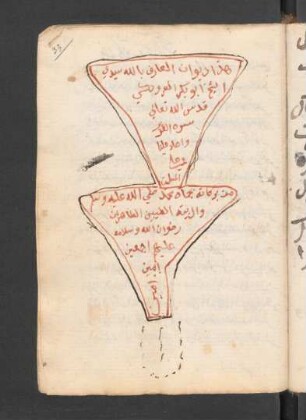 هذا ديوان العارف بالله سيدي
الشيخ ابو بكر العرودكي
قدس الله تعالى
سره العزيز
واعاد علينا
من بركاته بجاه محمد صلى الله عليه وسلم
وال بيته الطيبين الطاهرين
رضوان الله وسلامه
عليهم اجمعين
امين
امين